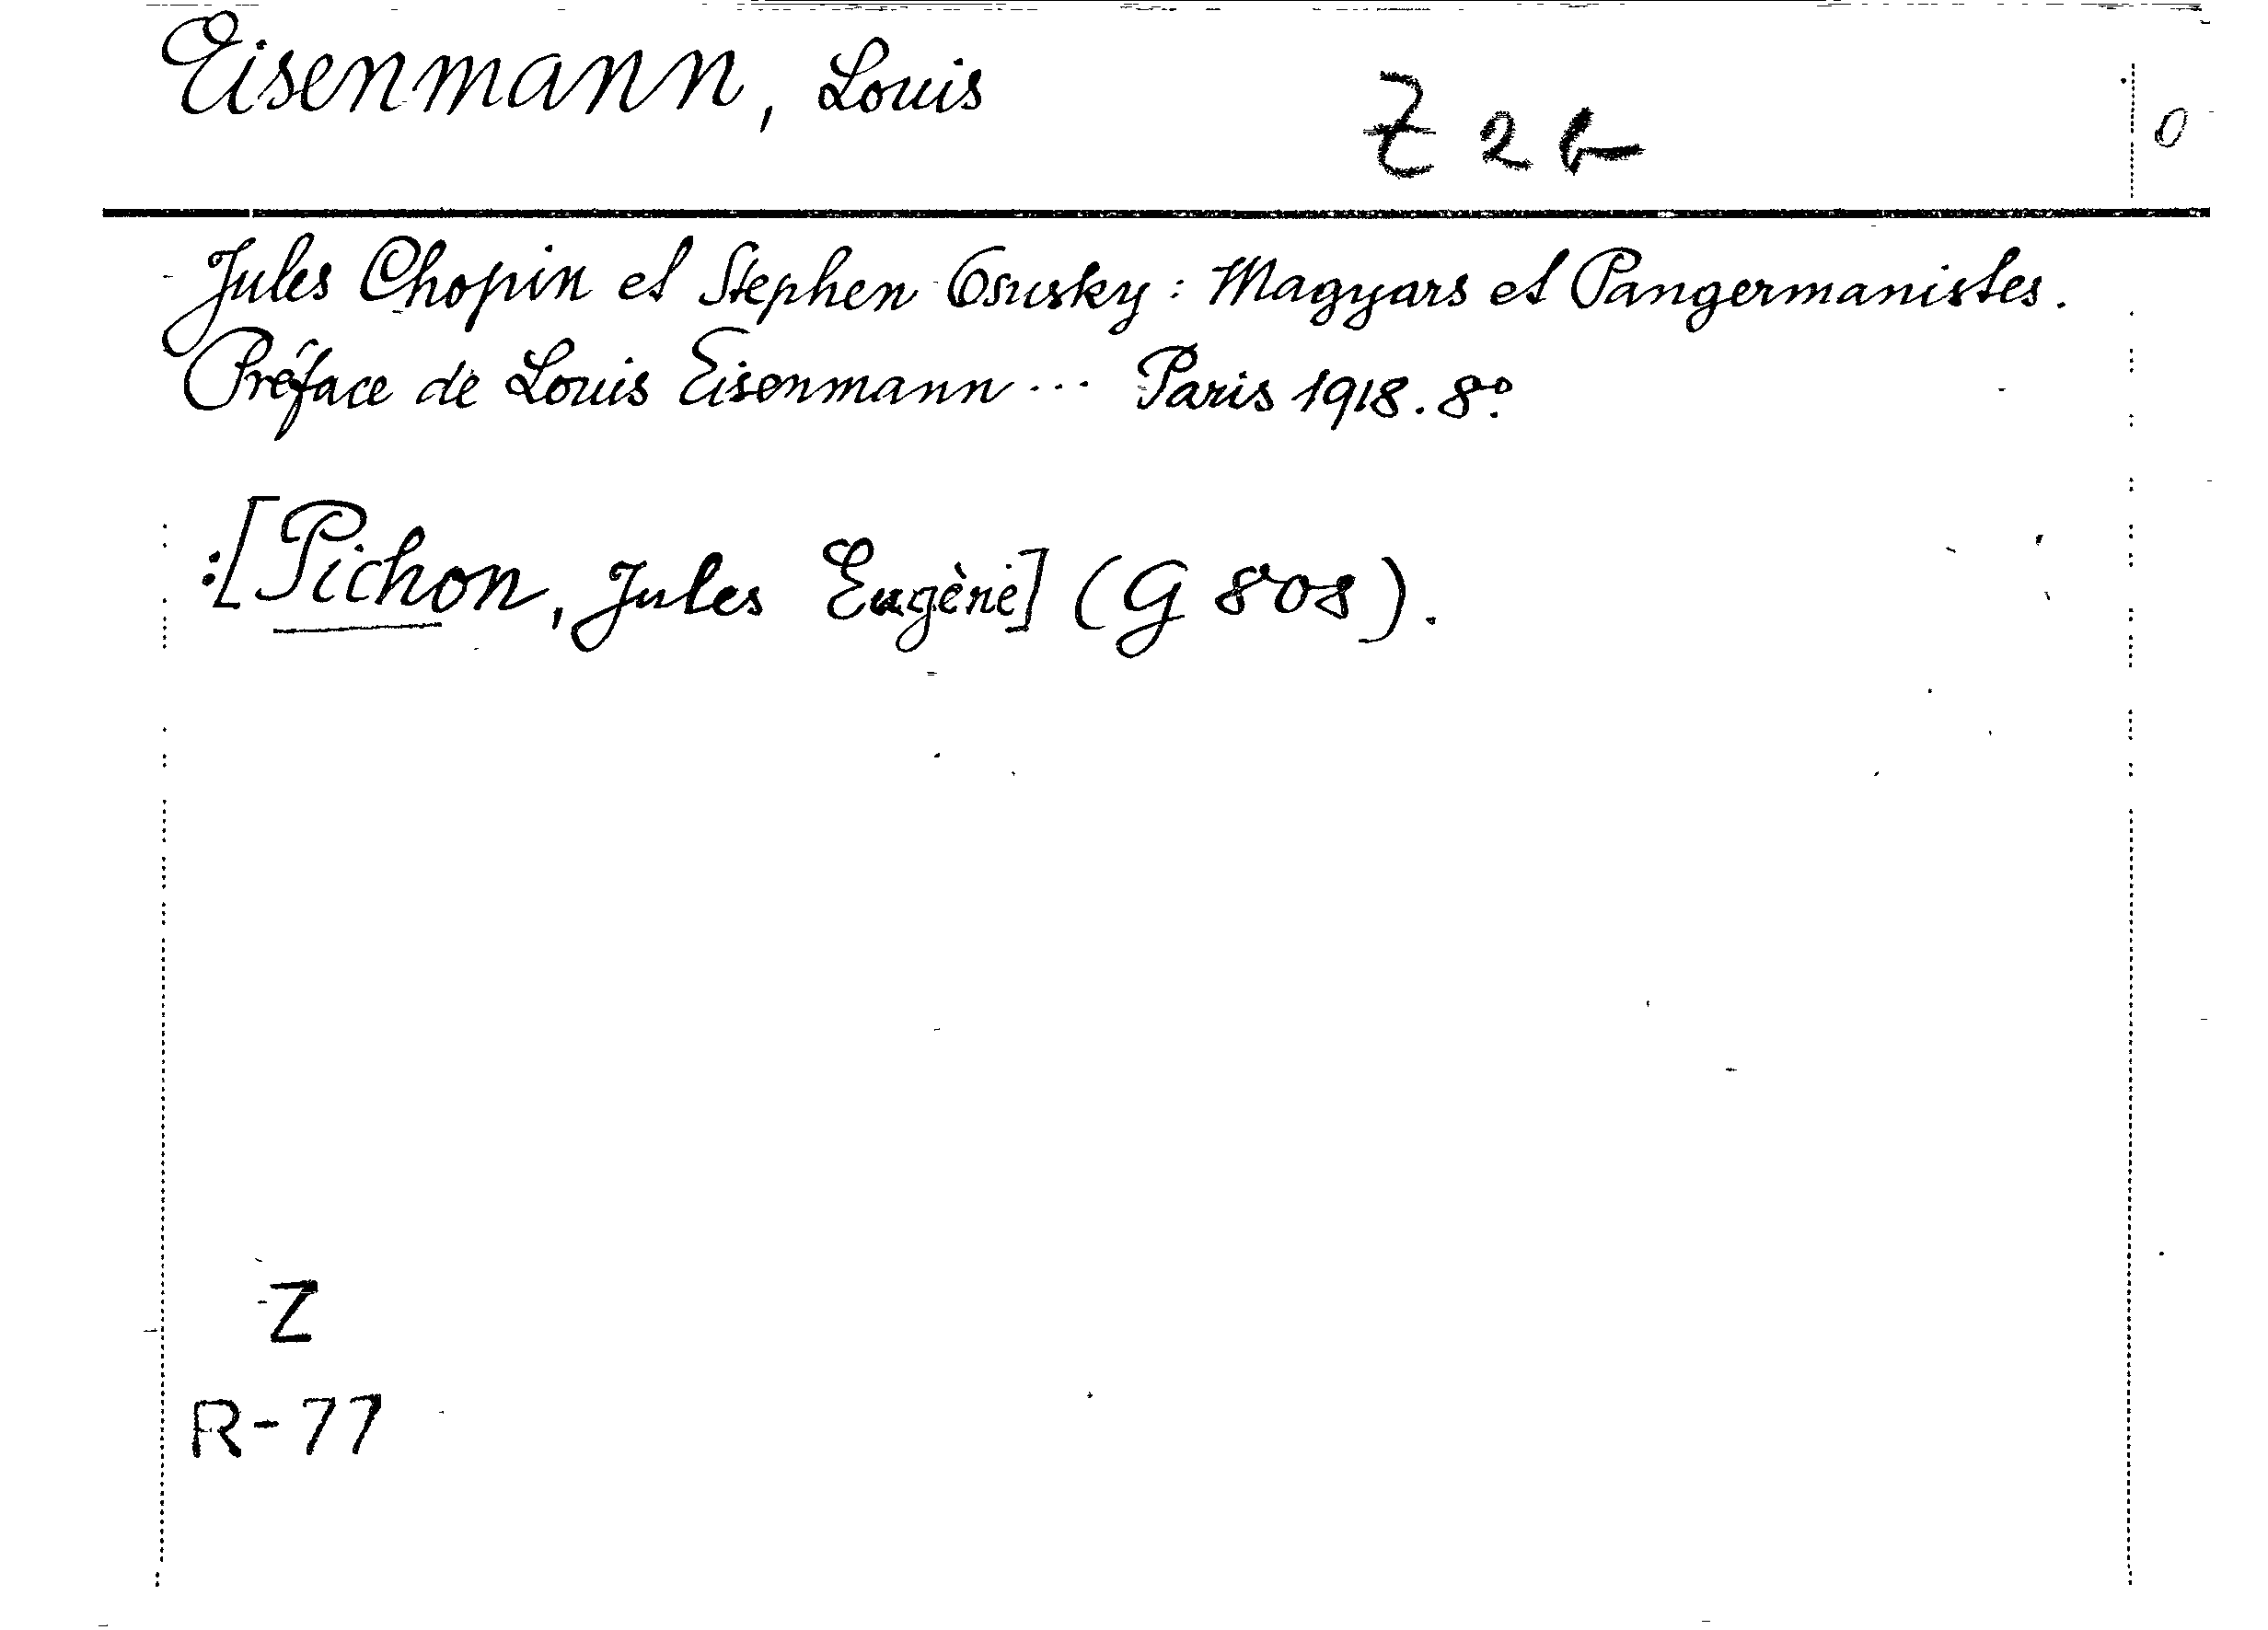 Eisenmann, Louis
Z 2 b
0
Jules Chopin et Stephen Osusky: Magyars et Pangermanistes.
Préface de Louis Eisenmann ... Paris 1918. 8º.
:[Pichon, Jules Eugène] (G 808).
Z
R-77